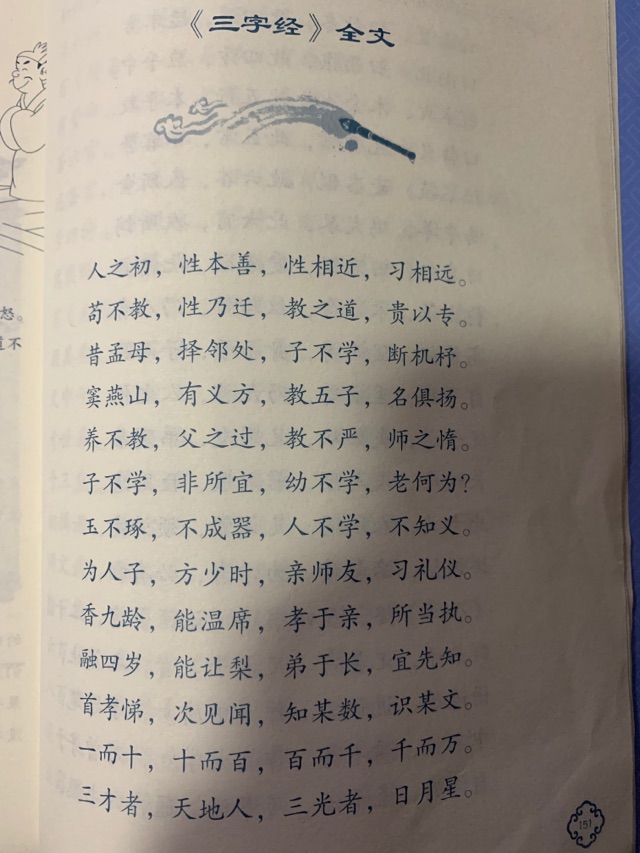 《三字经》全文
人之初，性本善，性相近，习相远。
苟不教，性乃迁，教之道，贵以专。
昔孟母，择邻处，子不学，断机杼。
窦燕山，有义方，教五子，名俱扬。
养不教，父之过，教不严，师之惰。
子不学，非所宜，幼不学，老何为？
玉不琢，不成器，人不学，不知义。
为人子，方少时，亲师友，习礼仪。
香九龄，能温席，孝于亲，所当执。
融四岁，能让梨，弟于长，宜先知。
首孝悌，次见闻，知某数，识某文。
一而十，十而百，百而千，千而万。
三才者，天地人，三光者，日月星。
151
怒。
道不